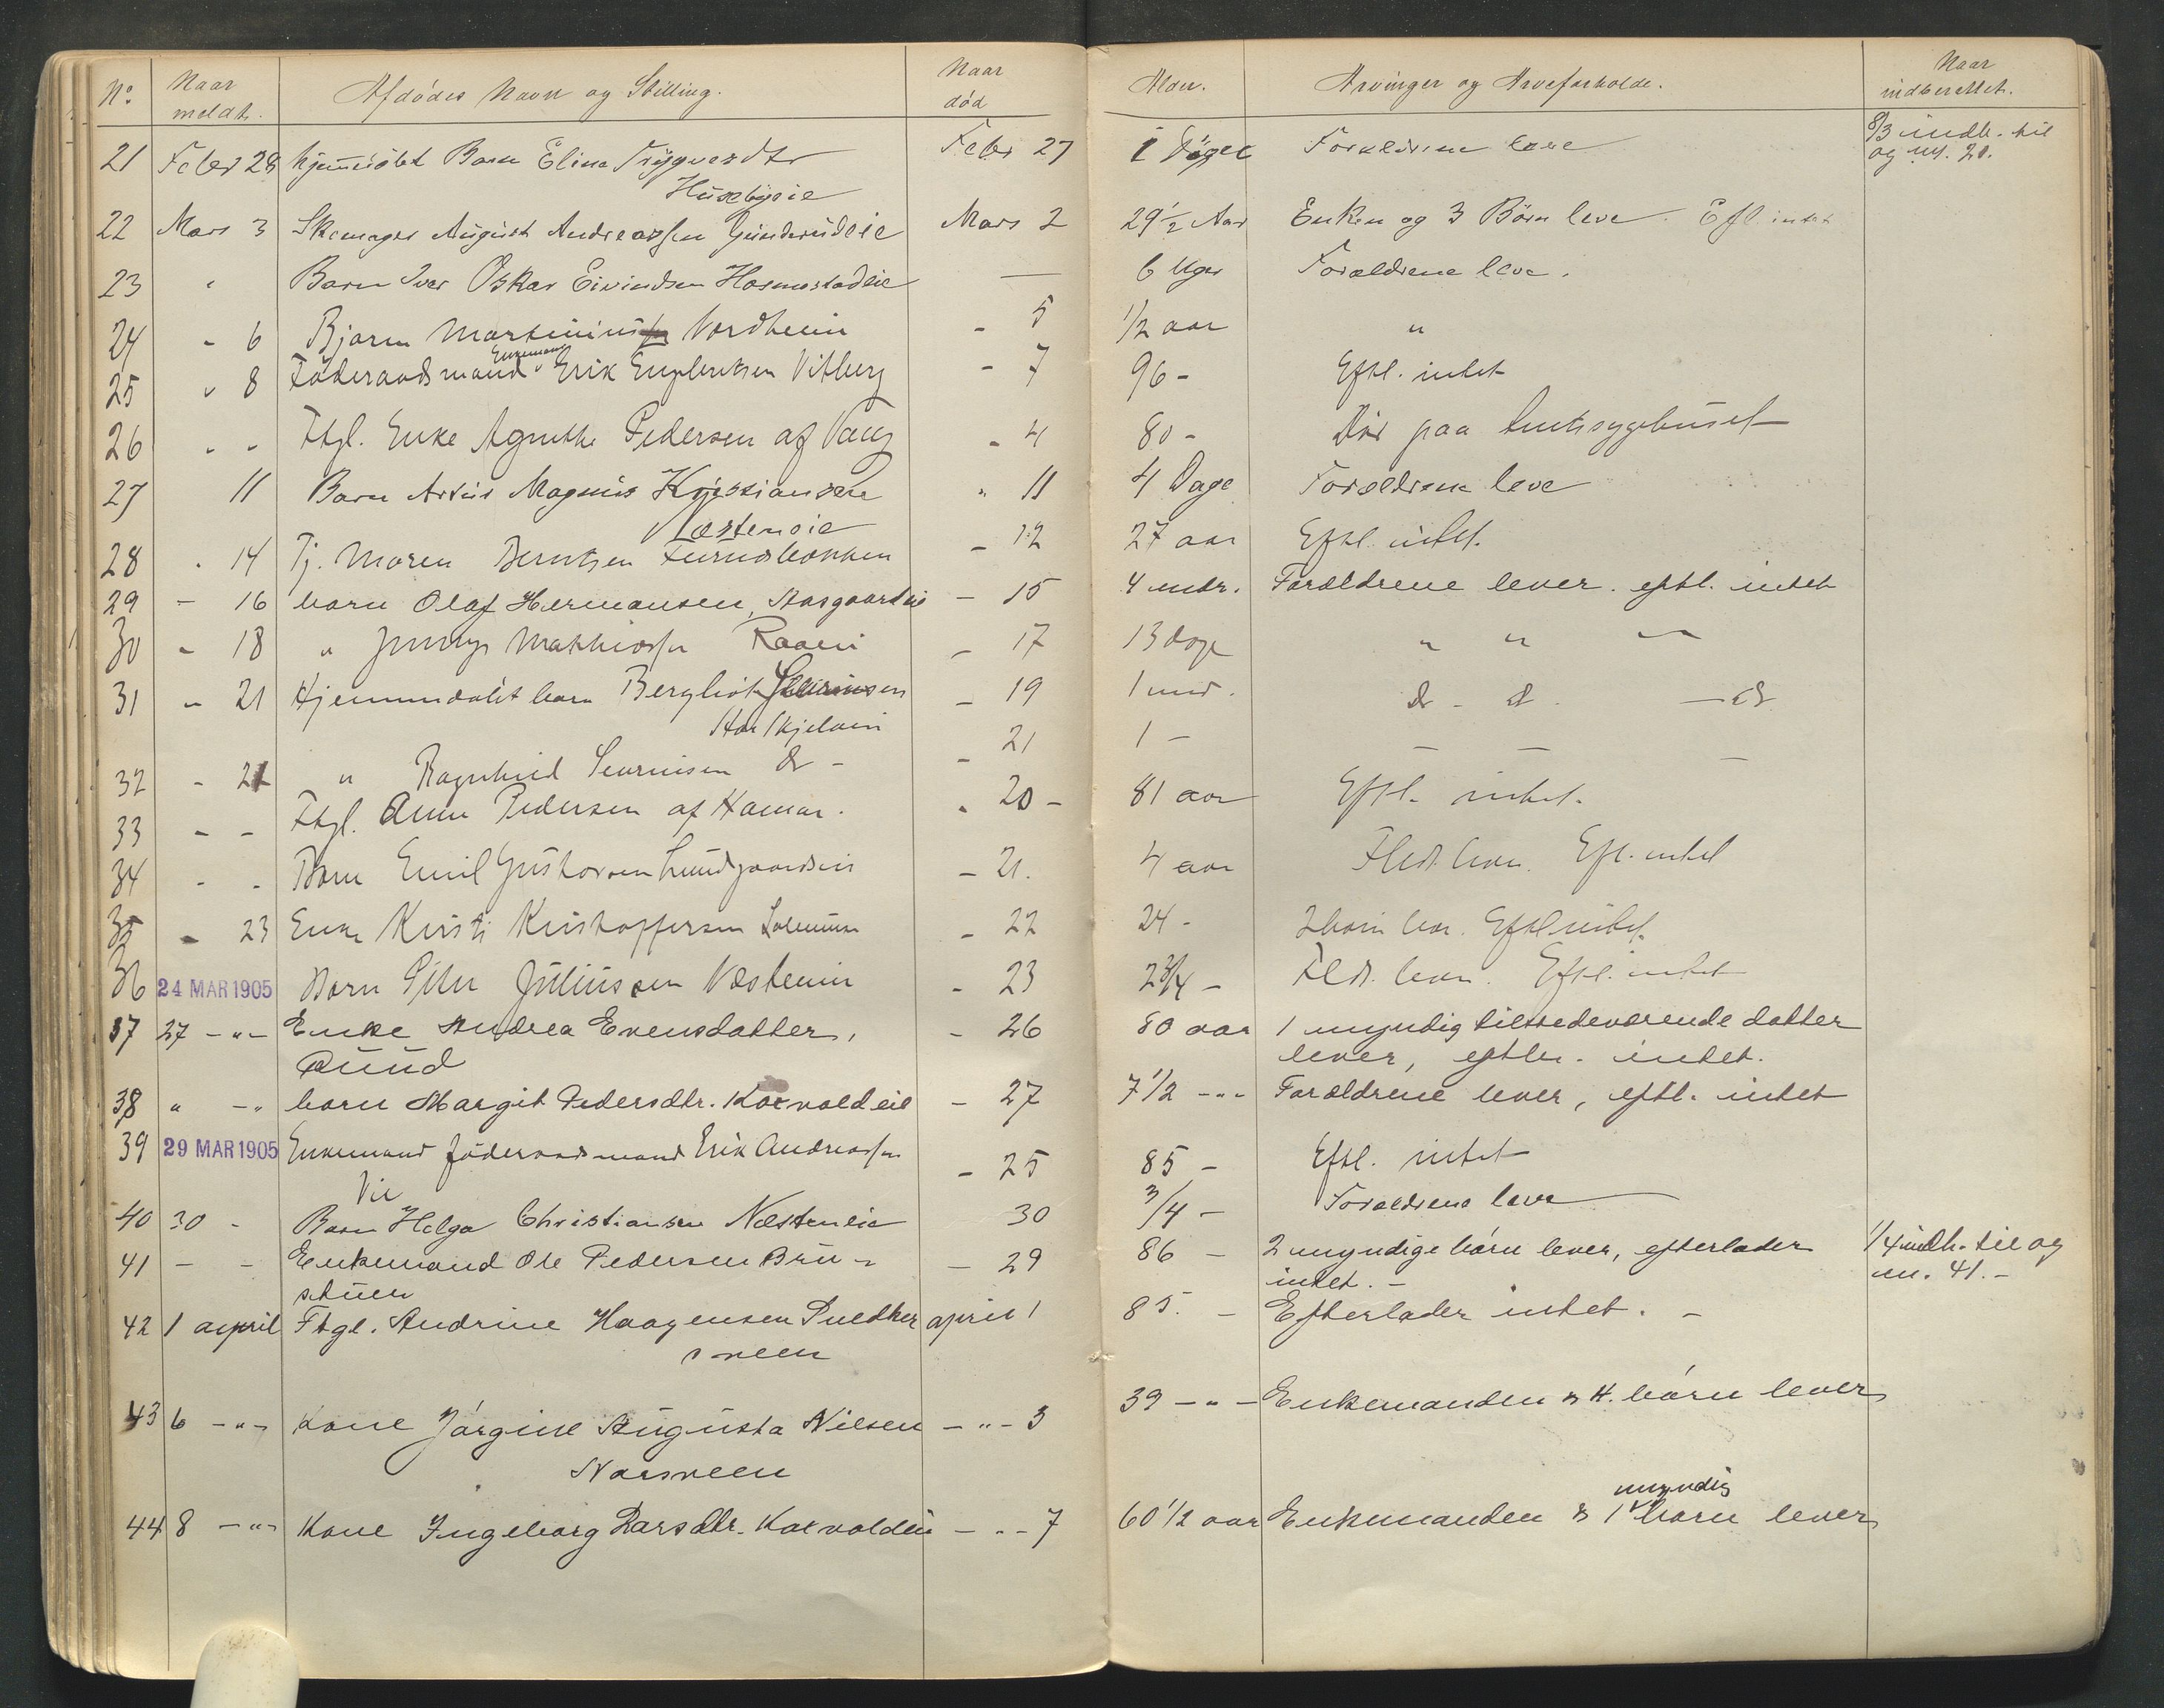 No Naar meldt. Afdödes Navn og Stilling. Naar död Alder. Arvinger og Arveforholde. Naar indberettet.
21 Febr 28 hjemmedöbt Barn Eline Trygvesdtr Febr 27 1 Döger Forældrene leve 8/3 indb. til
Husebyeie og nr. 20.
22 Mars 3 Skomager August Andreassen Gunderudeie Mars 2 29 1/2 Aar Enken og 3 Börn leve. Efl. intet
23 " Barn Iver Oskar Eivindsen Hosmestadeie — 6 Uger Forældrene leve.
24 - 6 Bjarn Martinius Nordheim - 5 1/2 aar "
25 " 8 Föderaadsmand Enkemand Erik Engebretsen Vitberg - 7 96 - Eftl. intet
26 " - Ftgl. Enke Agnethe Pedersen af Vang - 4 80 - Död paa Amtssygehuset
27 11 Barn Artur Magnus Kristiansen " 11 4 Dage Forældrene leve
Næsteneie
28 . 14 Pj. Maren Berntsen Furnesbakken - 12 27 aar Eftl. intet.
29 - 16 barn Olaf Hermansen, Aasgaardeie - 15 4 mdr. Forældrene lever. eftl. intet
30 - 18 " Jenny Mathiassen Raaen - 17 13 dage " " —
31 - 21 Hjemmedöbt barn Bergliot Severinsen - 19 1 mnd. do - do - do
Stor Skjelven
32 - 21 " Ragnhild Severinsen do - - 21 1 - — — —
33 - - Ftgl. Anne Pedersen af Hamar. - 20 - 81 aar Eftl. intet.
34 - - Barn Emil Gustavsen Lundgaardseie - 21. 4 aar Fldr. lever. Eftl. intet
35 - 23 Enke Kirsti Kristoffersen - 22 24 - 2 barn lever. Eftl intet.
36 24 MAR 1905 Barn Peter Juliussen Næsteneie - 23 2 3/4 - Fldr. lever. Eftl. intet
37 27 - " - Enke Andrea Evensdatter, - 26 80 aar 1 myndig tilstedeværende datter
Aurud lever, eftlr. intet.
38 " - " barn Margit Pedersdtr. Korvoldeie - 27 7 1/2 - " - Forældrene lever, eftl. intet
39 29 MAR 1905 Enkemand föderaadsmand Erik Andreassen - 25 85 - Eftl. intet
Vie
40 30 - Barn Helga Christiansen Næsteneie 30 3/4 - Forældrene leve
41 - - Enkemand Ole Pedersen Bru- - 29 86 - 2 myndige börn lever, efterlader 1/4 indb. til og
stuen intet. - nr. 41. -
42 1 april Ftgl. Andrine Haagensen Snedker april 1 85. - Efterlader intet. -
sveen
43 6 - " - Kone Jörgine Augusta Nilsen - " - 3 39 - " - Enkemanden & 4. börn lever
Norsveen
44 8 - " - Kone Ingeborg Larsdtr. Korvoldeie - " - 7 60 1/2 aar Enkemanden & 1 myndig barn lever